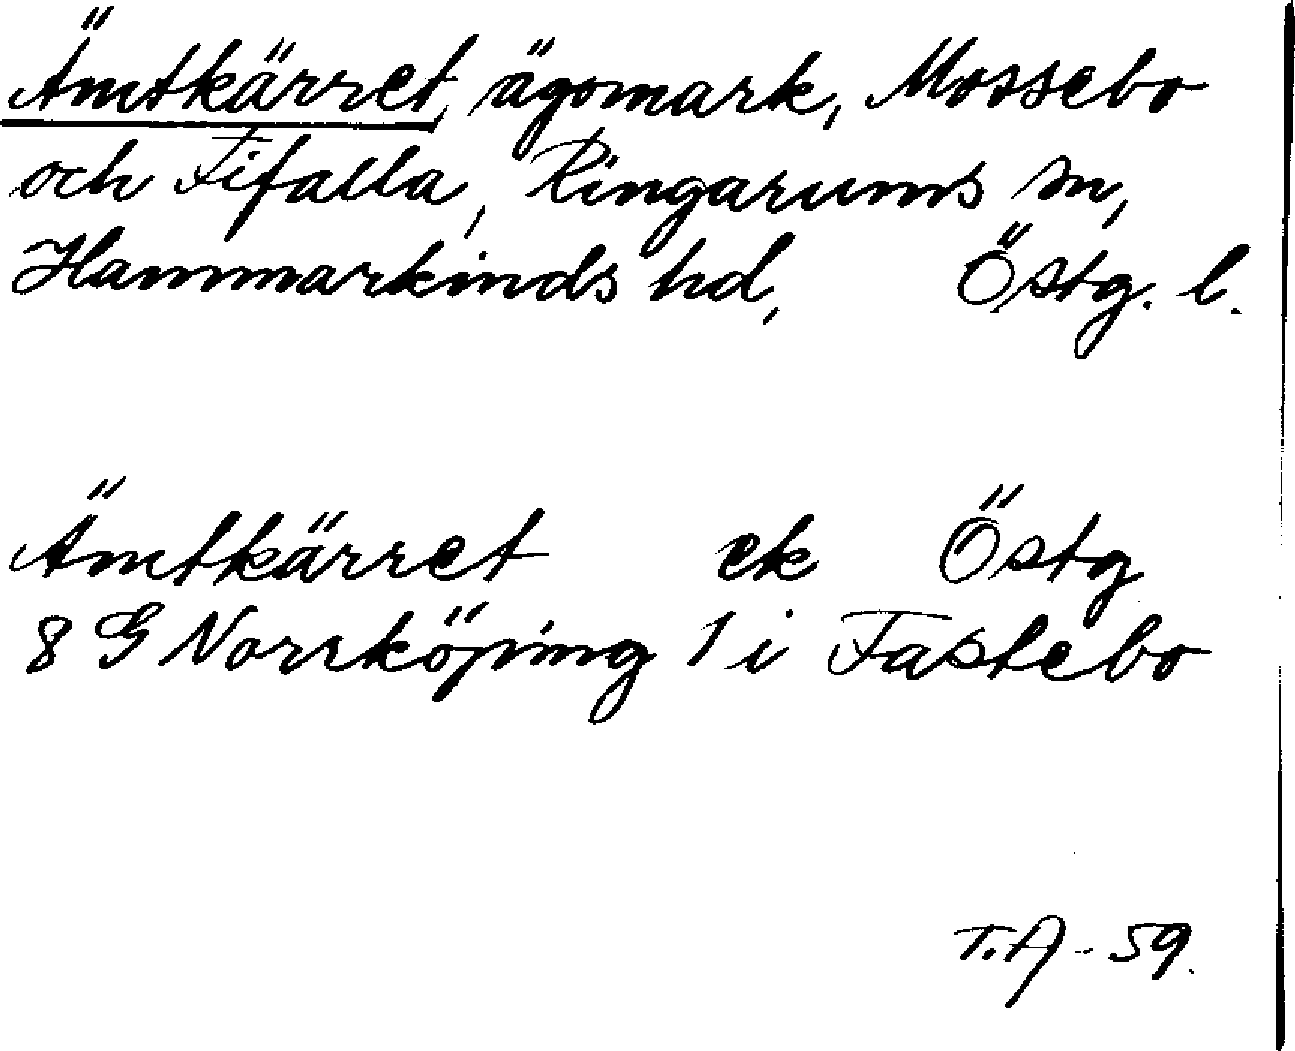 Ämtkärret, ägomark, Mossebo
och Fifalla, Ringarums sn,
Hammarkinds hd, Östg. l.
Ämtkärret ek Östg
8 G Norrköping 1 i Fastebo
T.A - 59.